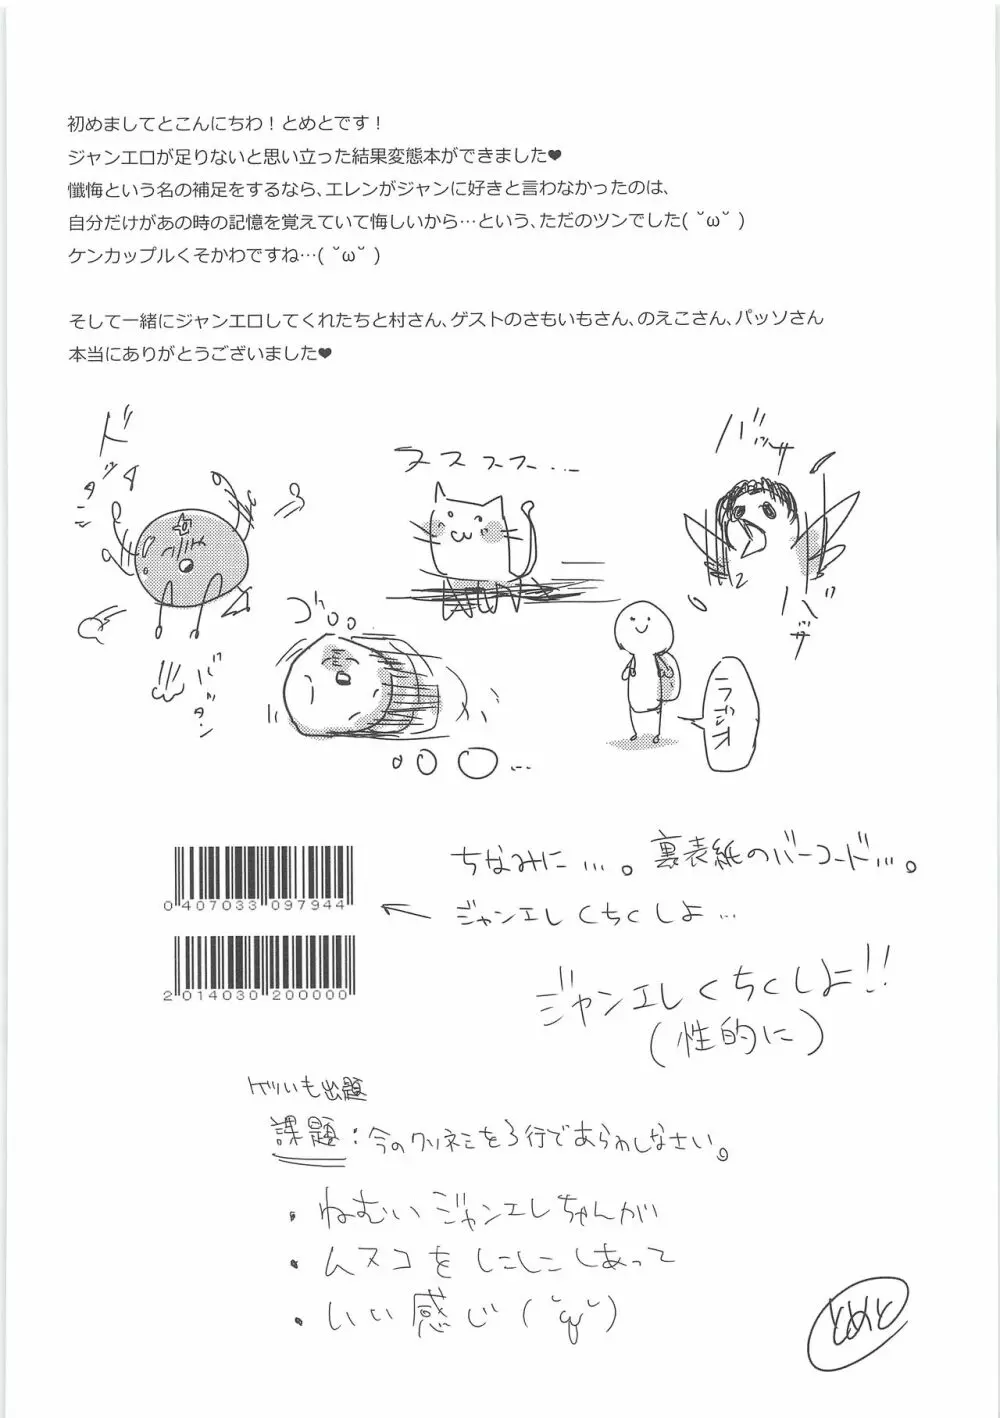 初めましてとこんにちわ！とめとです！
ジャンエロが足りないと思い立った結果変態本ができました♥
懺悔という名の補足をするなら、エレンがジャンに好きと言わなかったのは、
自分だけがあの時の記憶を覚えていて悔しいから…という、ただのツンでした( ˘ω˘ )
ケンカップルくそかわですね…( ˘ω˘ )
そして一緒にジャンエロしてくれたたちと村さん、ゲストのさもいもさん、のえこさん、パッソさん
本当にありがとうございました♥
ドッタン
バッサ
ヌスススー…
バッタン
バサ
ゴロロ
ロロロ…
ちなみに…。裏表紙のバーコード…。
0 407033 097944
←ジャンエレくちくしよ…
2 014030 200000
ジャンエレくちくしよ!!
(性的に)
課題：今のクソネミを3行であらわしなさい。
・ねむいジャンエレちゃんが
・ムスコをしこしこしあって
・いい感じ(˘ω˘)
とめと